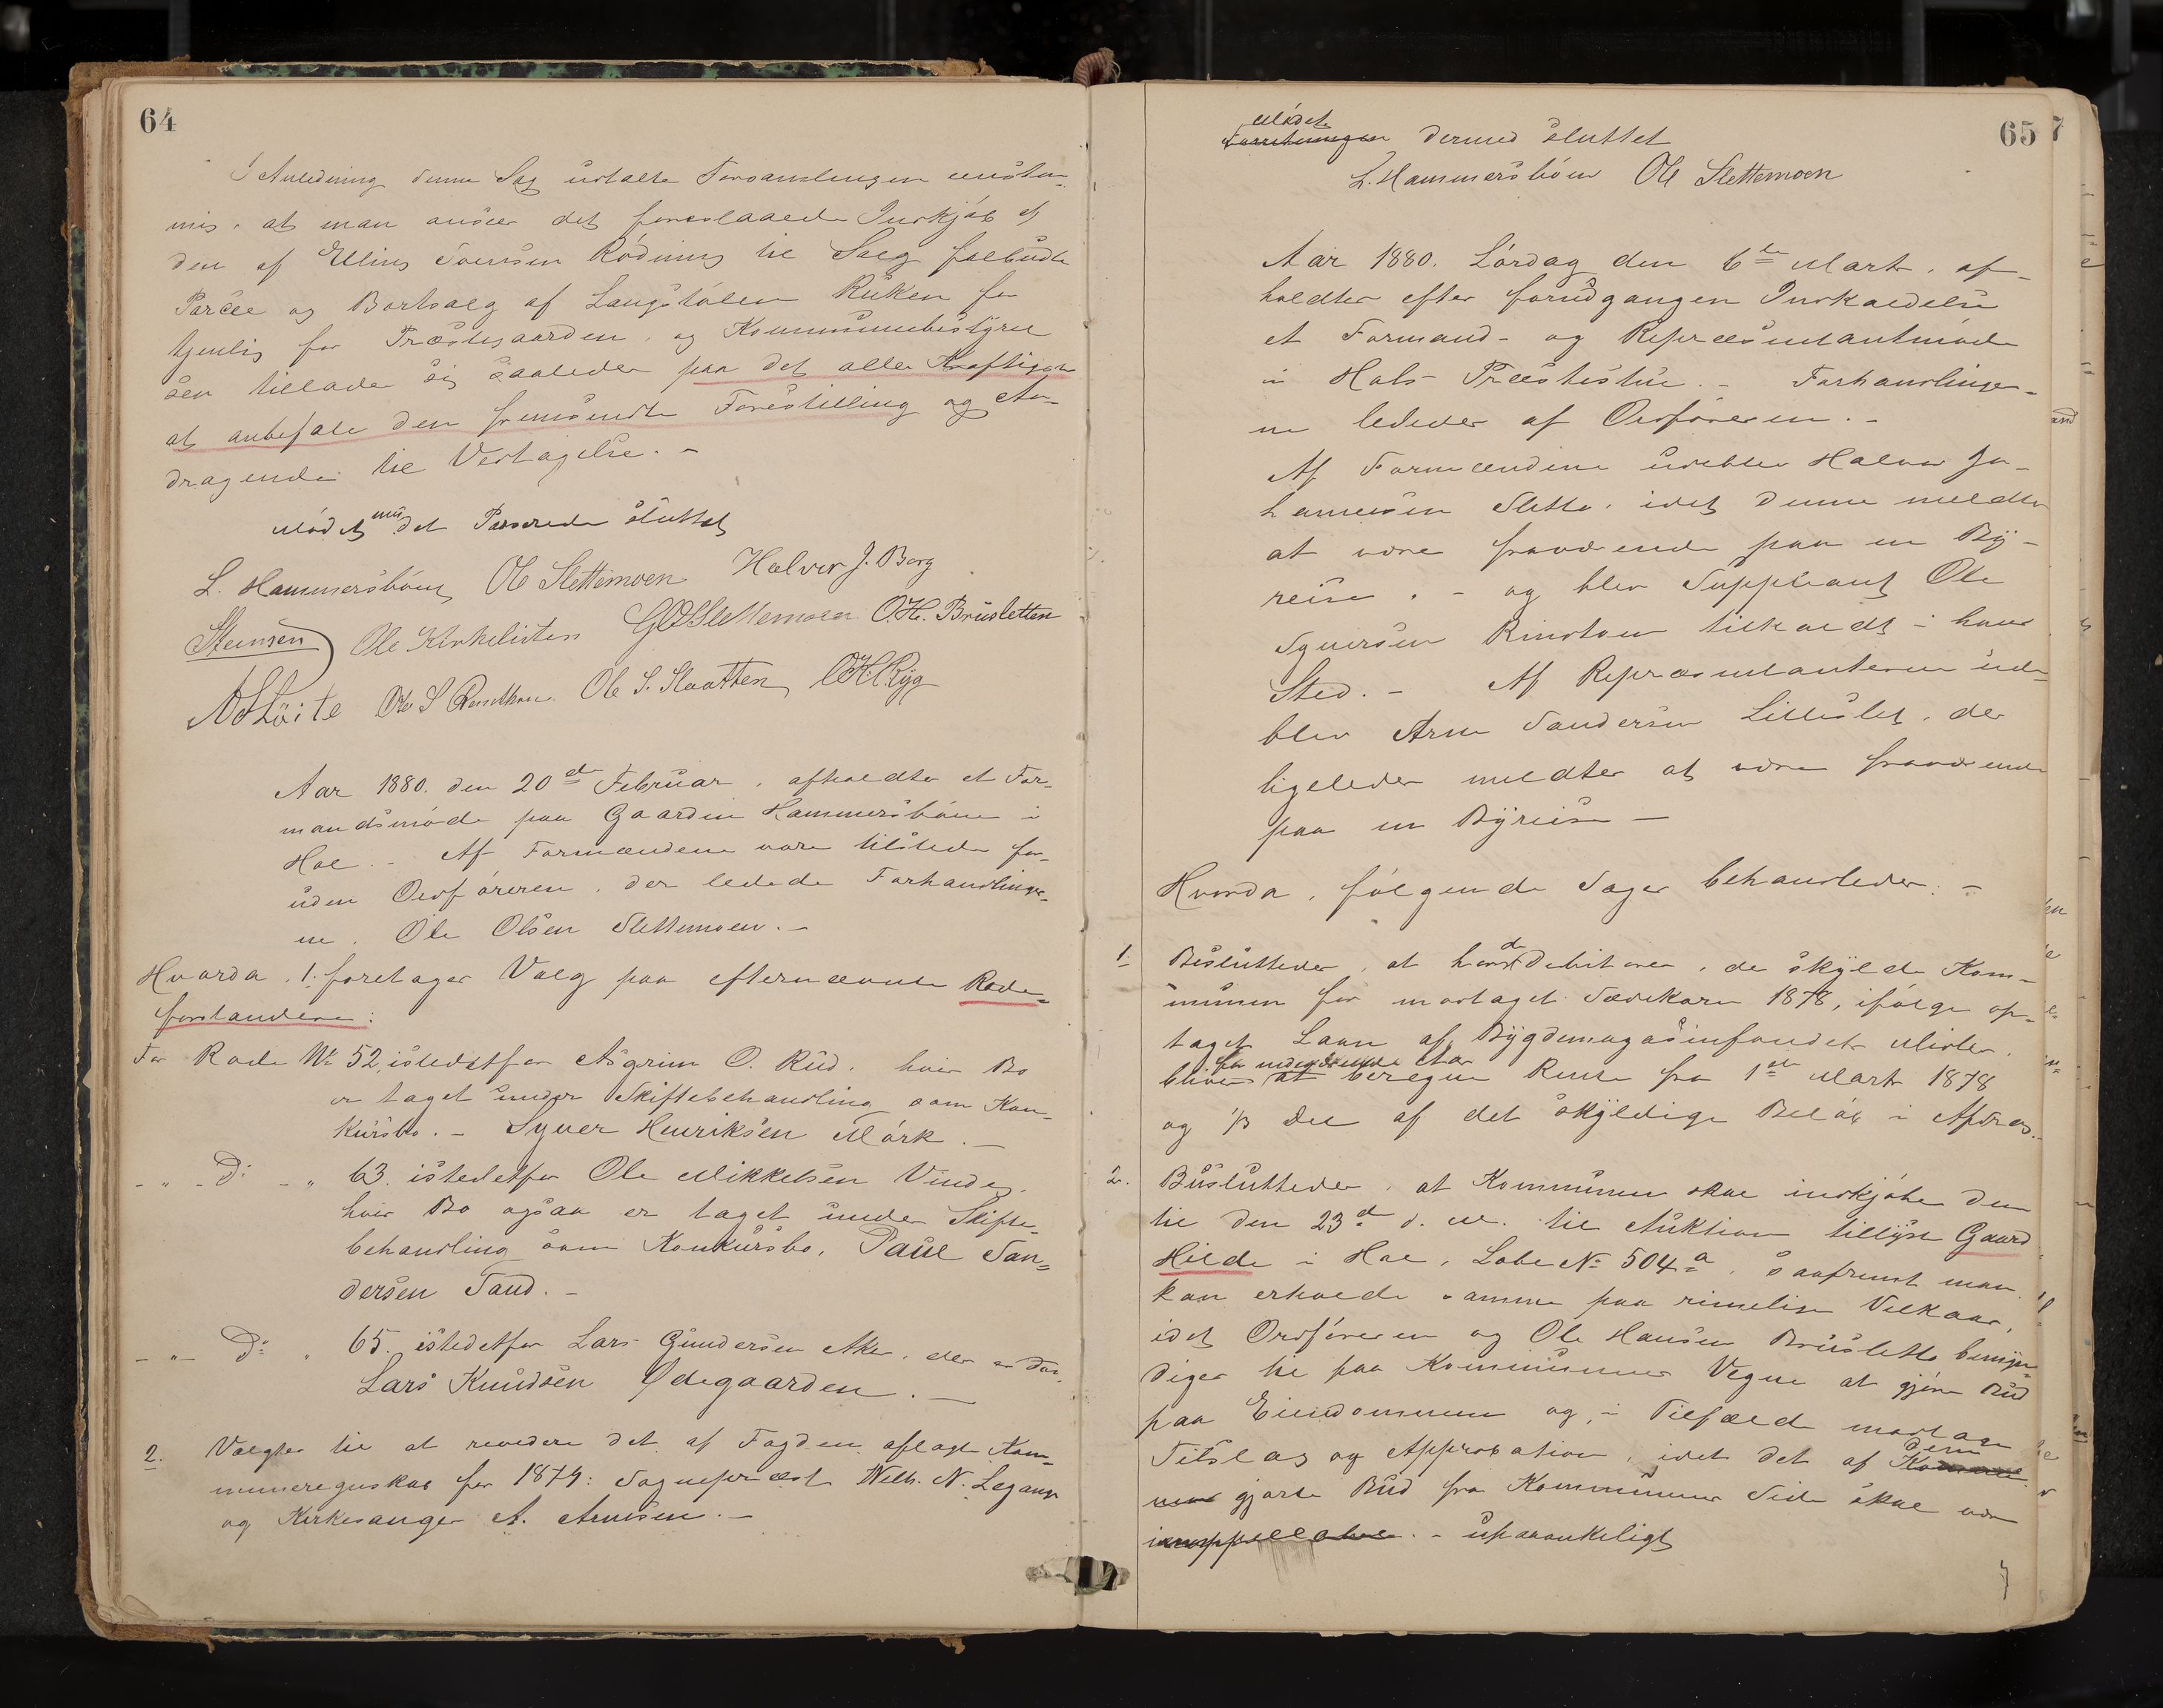 64
I Anledning denne Sag udtalte Forsamlingen enstem-
mig, at man anseer det foreslaaede Indkjøb af
den af Elling Svensen Rødning til Salg falbudte
Parcel og Bortsalg af Langstølen Ruken for
tjenlig for Præstegaarden, og Kommunebestyrel
sen tillader sig saaledes paa det aller Kraftigste
at anbefale den fremsendte Forestilling og An-
dragende til Vedtagelse. -
Mødet med det Passerede sluttet
L. Hammersbøen Ole Slettemoen Halvor J. Berg
Steensen Ole Kirkelieten G O Slettemoen O.H. Brusletten
A S Löite Ole S Ole S. Slaatten O.H. Ryg
Aar 1880. den 20de Februar, afholdtes et For-
mandsmøde paa Gaarden Hammersbøen i
Hol. - Af Formændene vare tilstede for-
uden Ordføreren, der ledede Forhandlinge-
ne, Ole Olsen Slettemoen. -
Hvorda, 1. foretages Valg paa efternævnte Rode-
forstandere:
For Rode No 52, istedetfor Asgrim O. Rud, hvis Bo
er taget under Skiftebehandling som Kon-
kursbo. - Syver Henriksen Mørk. -
- " - Do - " 63. istedetfor Ole Mikkelsen Vindeg,
hvis Bo ogsaa er taget under Skifte-
behandling som Konkursbo, Paul San-
dersen Sand. -
- " - Do " 65. istedetfor Lars Gundersen Aker, der er død,
Lars Knudsen Ødegaarden. -
2. Valgtes til at revidere det af Fogden aflagte Kom-
muneregnskab for 1879: Sognepræst Wilh. N. Legang
og Kirkesanger A. Arnesen. -
65
7
Mødet
Forretningen dermed sluttet
L. Hammersbøen Ole Slettemoen
Aar 1880. Lørdag den 6te Marts, af-
holdtes efter forudgangen Indkaldelse
et Formand- og Repræsentantmøde
i Hols Præstestue. - Forhandlinge-
ne lededes af Ordføreren. -
Af Formændene udeblev Halvor Jo-
hannesen Sletto, idet denne meldtes
at være fraværende paa en By-
reise. - og blev Suppleant Ole
Syversen tilkaldt i hans
Sted. - Af Repræsentanterne ude-
blev Arne Sandersen Lilleslet, der
ligeledes meldtes at være fraværende
paa en Byreise -
Hvorda, følgende Sager behandledes: -
1. Besluttedes, at de Debitorer, de skylde Kom-
munen for modtaget Sædekorn 1878, ifølge op-
taget Laan af Bygdemagasinfondets Midler,
for indeværende Aar
bliver at beregne Rente fra 1ste Marts 1878
og 1/3 Del af det skyldige Beløb i Afdrag. -
2. Besluttedes, at Kommunen skal indkjøbe den
til den 23de d. M. til Auktion tillyste Gaard
Hilde i Hol, Løbe No 504a, saafremt man
kan erholde samme paa rimelige Vilkaar,
idet Ordføreren og Ole Hansen Brusletto bemyn-
diges til paa Kommunens Vegne at gjøre Bud
paa Eiendommen og, i Tilfælde modtage
Tilslag og Approbation, idet det af dem Kommu
nen gjorte Bud fra Kommunens Side skal være
inappellabel. - upaaankeligt